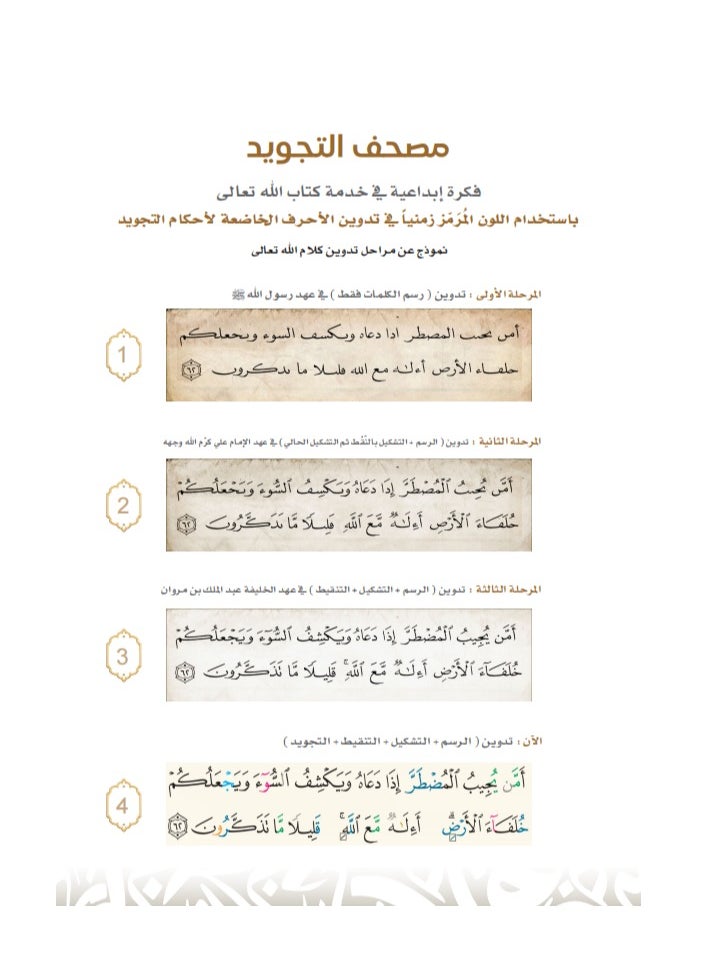 مصحف التجويد
فكرة إبداعية في خدمة كتاب الله تعالى
باستخدام اللون المُرَمَّز زمنياً في تدوين الأحرف الخاضعة لأحكام التجويد
نموذج عن مراحل تدوين كلام الله تعالى
المرحلة الأولى : تدوين ( رسم الكلمات فقط ) في عهد رسول الله ﷺ
1
أمں ٮحٮٮ المصطر ادا دعاه وٮكسف السوء وٮحعلكم
حلفاء الأرص أءلـٰه مع الله ڡلٮلا ما ٮدكروں ٦٢
المرحلة الثانية : تدوين ( الرسم + التشكيل بالنُقَط ثم التشكيل الحالي ) في عهد الإمام علي كرّم الله وجهه
2
أَمَّں ٮُحِٮٮُ الْمُصْطَرَّ إِدَا دَعَاهُ وَٮَكْسِفُ السُّوءَ وَٮَحْعَلُكُمْ
حُلَفَاءَ الْأَرْصِ أَءِلَـٰهٌ مَّعَ اللَّهِ ڡَلِٮلًا مَّا ٮَدَكَّرُوںَ ٦٢
المرحلة الثالثة : تدوين ( الرسم + التشكيل + التنقيط ) في عهد الخليفة عبد الملك بن مروان
3
أَمَّن يُجِيبُ الْمُضْطَرَّ إِذَا دَعَاهُ وَيَكْشِفُ السُّوٓءَ وَيَجْعَلُكُمْ
خُلَفَآءَ الْأَرْضِ أَءِلَـٰهٌ مَّعَ اللَّهِ ۚ قَلِيلًا مَّا تَذَكَّرُونَ ٦٢
الآن : تدوين ( الرسم + التشكيل + التنقيط + التجويد )
4
أَمَّن يُجِيبُ الْمُضْطَرَّ إِذَا دَعَاهُ وَيَكْشِفُ السُّوٓءَ وَيَجْعَلُكُمْ
خُلَفَآءَ الْأَرْضِ ۗ أَءِلَـٰهٌ مَّعَ اللَّهِ ۚ قَلِيلًا مَّا تَذَكَّرُونَ ٦٢